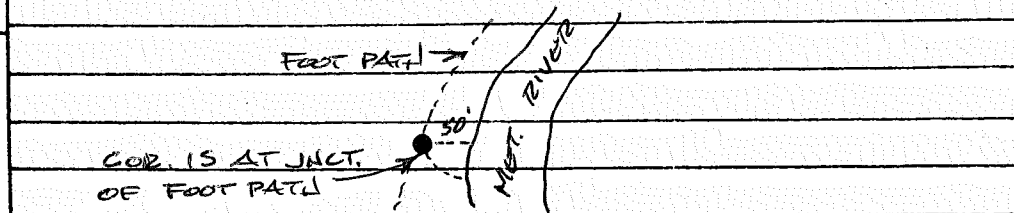 FOOT PATH
50'
MET. RIVER
COR. IS AT JNCT.
OF FOOT PATH